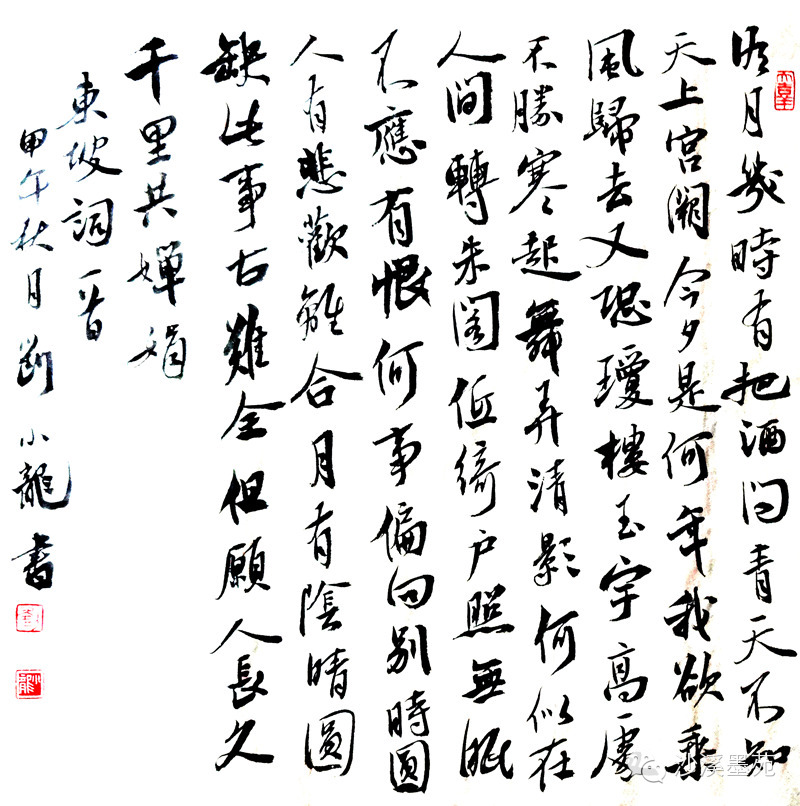 明月幾時有把酒問青天不知
天上宮闕今夕是何年我欲乘
風歸去又恐瓊樓玉宇高處
不勝寒起舞弄清影何似在
人間轉朱閣低綺戶照無眠
不應有恨何事偏向別時圓
人有悲歡離合月有陰晴圓
缺此事古難全但願人長久
千里共嬋娟
東坡詞一首
甲午秋月劉小龍書
溪墨苑